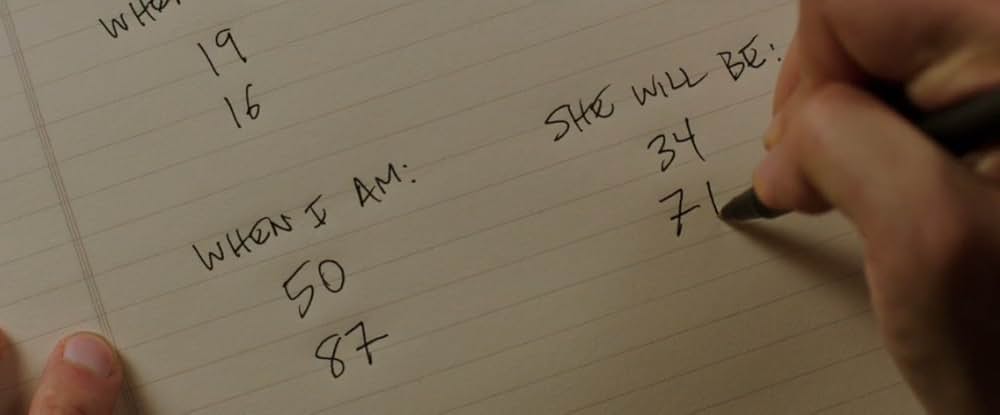 19
16
WHEN I AM:
50
87
SHE WILL BE:
34
71